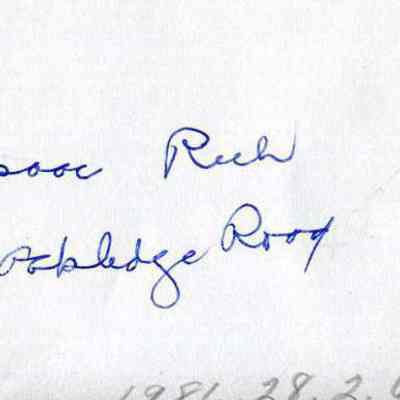 saac Rich
Oakledge Road
1981.28.2.